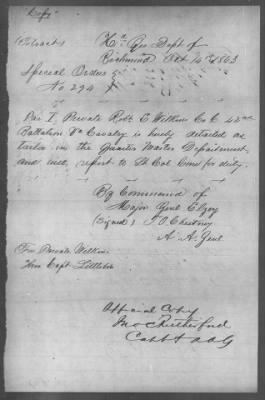 "Copy"
(Extract) Hd Qrs Dept of
Richmond Oct 16th 1863
Special Orders
No 294
Par I, Private Robt E Wilkins Co C 43rd
Battalion Va Cavalry is hereby detailed as
in the Quarter Master Department
and will report to Lt Col Cone for duty.
By Command of
Major Genl Elzey
(Signed) T. O. Chestney
A. A. Genl
For Private Wilkins
Thro Capt
Official Copy
Jno C Rutherford
Capt & A A G